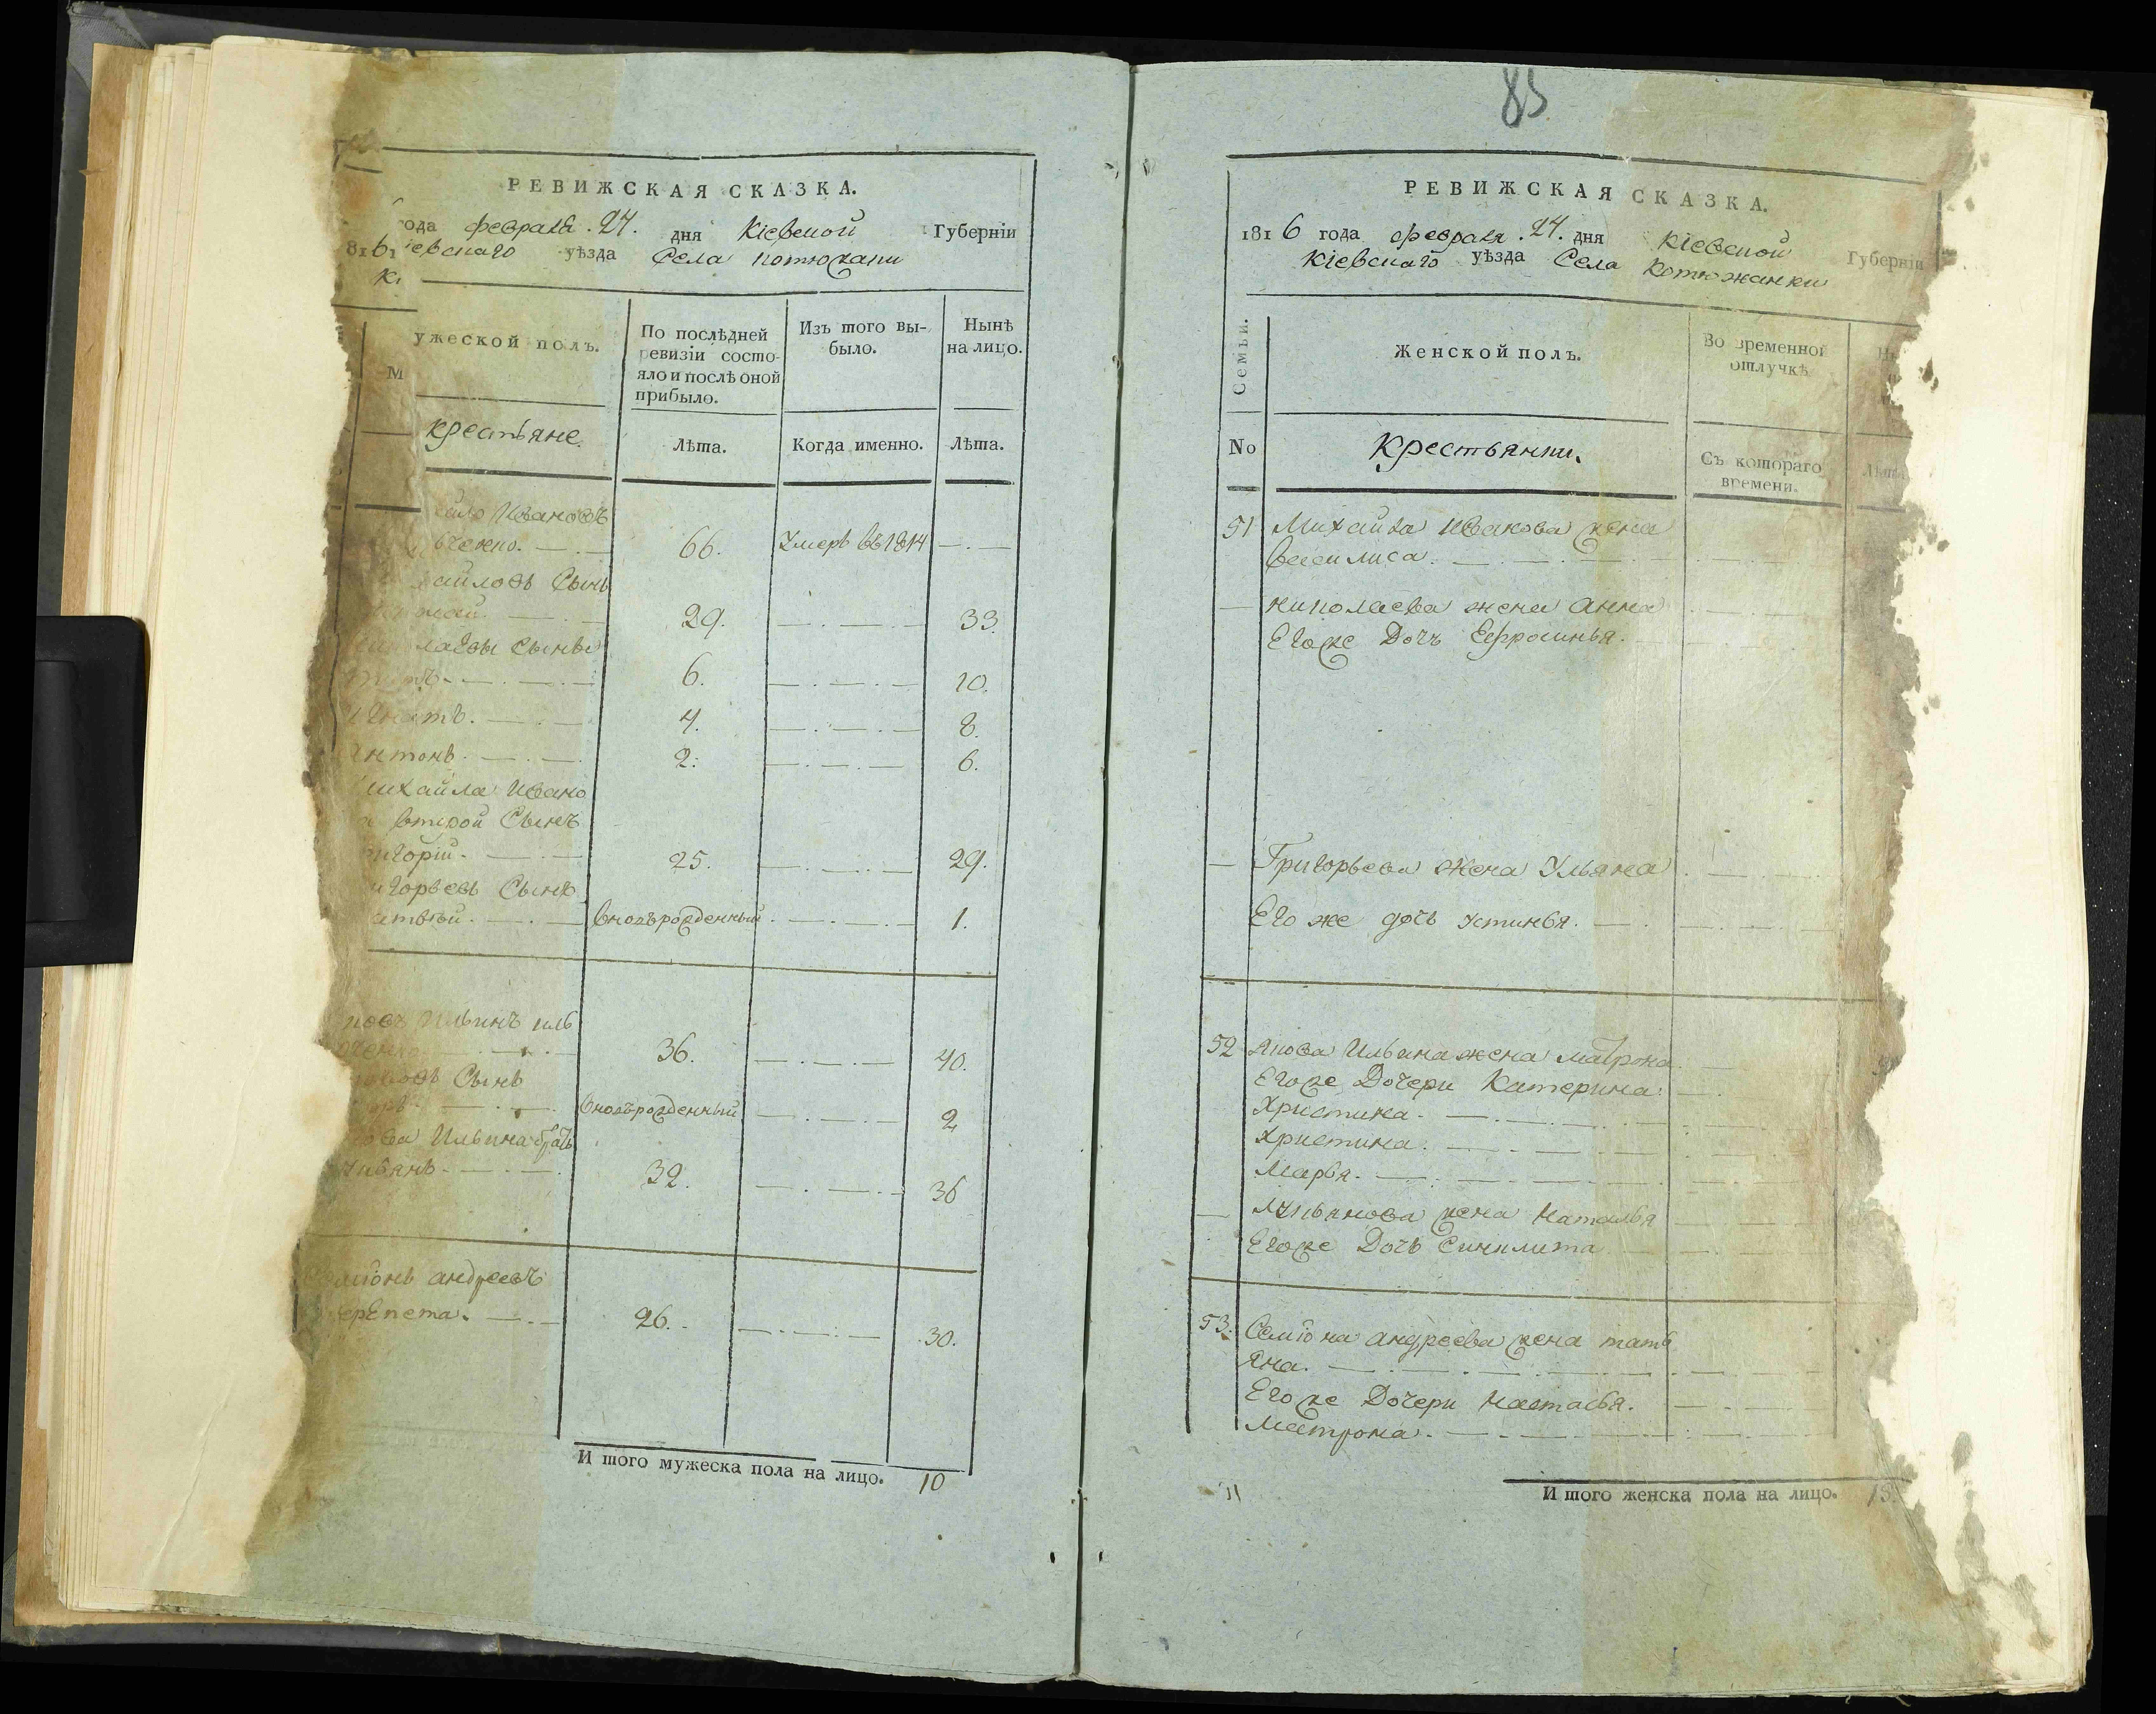 РЕВИЖСКАЯ СКАЗКА.
года февраля. 24. дня Кіевской Губерніи
816 Кіевскаго уѣзда Села Котюжанки
Мужеской полъ.
По послѣдней ревизіи состояло и послѣ оной прибыло.
Изъ того выбыло.
Нынѣ на лицо.
крестьяне.
Лѣта.
Когда именно.
Лѣта.
Ивановъ
66. Умеръ въ 1814 —
хайловъ Сынъ
29. — 33.
лаевы Сыны
6. — 10.
Игнатъ. — 4. — 8.
Антонъ. — 2. — 6.
Михайла Ивано
второй Сынъ
Григорій. — 25. — 29.
Григорьевъ Сынъ
атвѣй. — вновьрожденный. — 1.
Ильинъ иль
ченко. — 36. — 40.
Сынъ
вновьрожденный — 2
Ильина братъ
Лукьянъ. — 32. — 36
Семіонъ андреевъ
черепета. — 26. — 30.
И того мужеска пола на лицо. 10
85
РЕВИЖСКАЯ СКАЗКА.
1816 года февраля. 24. дня Кіевской Губерніи
Кіевскаго уѣзда Села Котюжанки
Семьи.
Женской полъ.
Во временной отлучкѣ
No
Крестьянки.
Съ котораго времени.
Лѣта
51 Михайла Иванова жена
василиса. —
— николаева жена Анна
Егоже Дочь Ефросинья.
— Григорьева жена Ульяна
Его же дочь Устинья. —
52 Якова Ильина жена Матрона
Егоже Дочери Катерина.
Христина. —
Христина. —
Марья. —
— Лукьянова жена Наталья
Егоже Дочь Синклита
53. Семіона андреева жена тать
яна. —
Егоже Дочери Настасья.
Матрона. —
И того женска пола на лицо. 13.